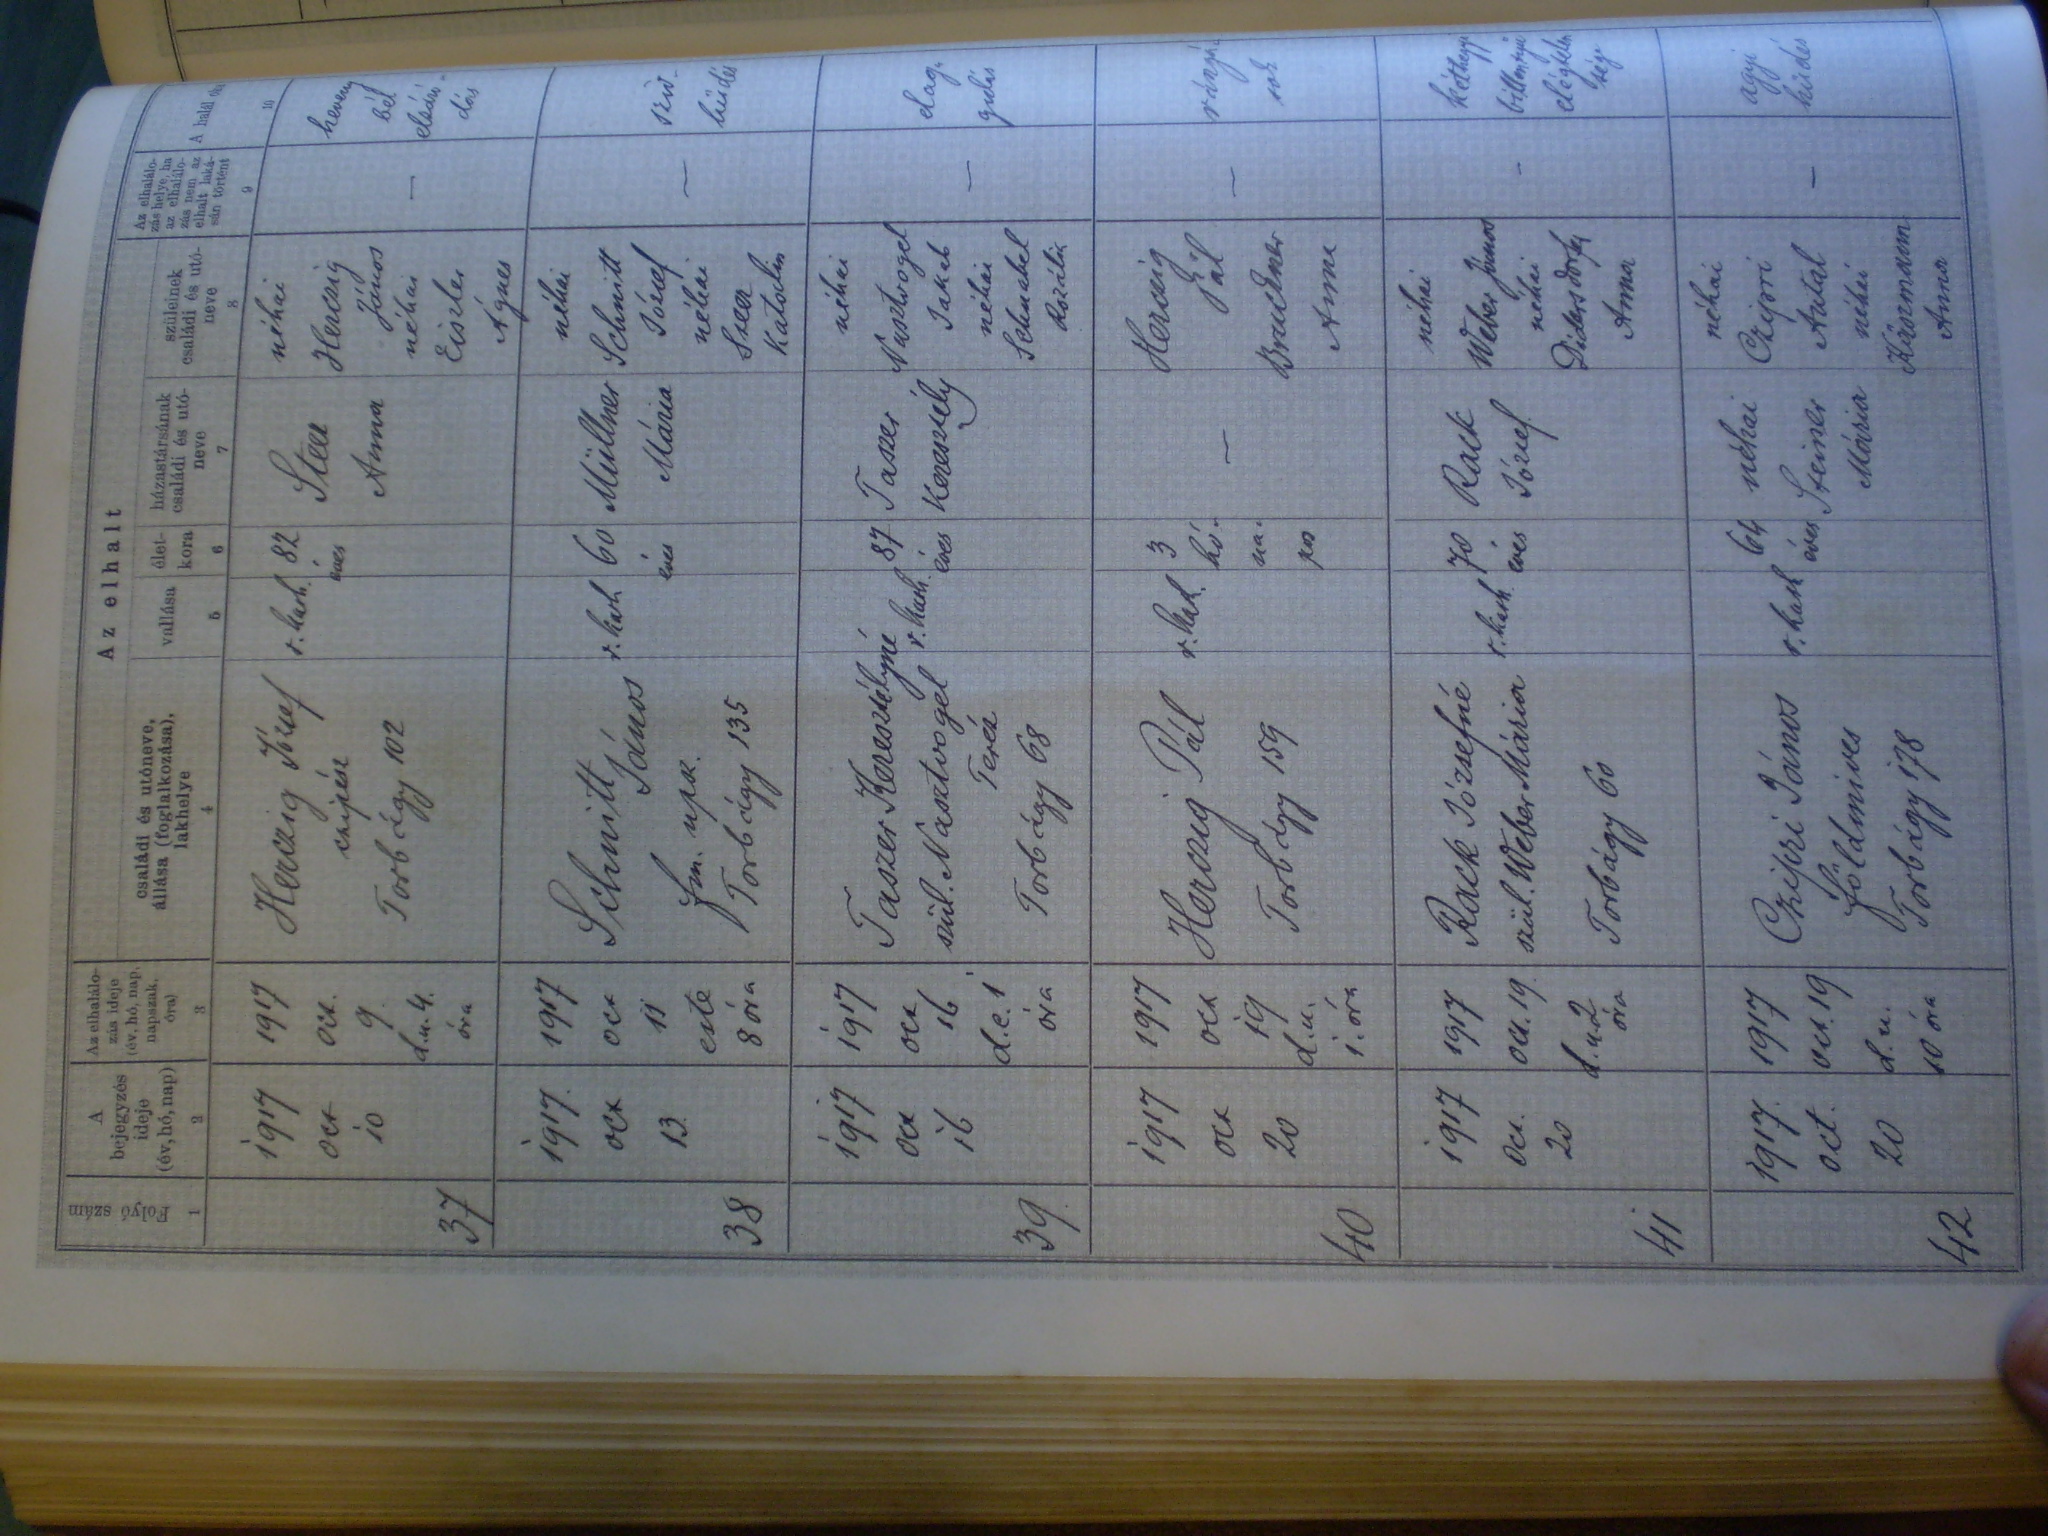 Az elhalt
Folyó szám
A bejegyzés ideje (év, hó, nap)
Az elhalálo-
zás ideje
(év, hó, nap,
napszak,
óra)
családi és utóneve,
állása (foglalkozása),
lakhelye
vallása
élet-
kora
házastársának
családi és utó-
neve
szüleinek
családi és utó-
neve
Az elhalálo-
zás helye, ha
az elhaláло-
zás nem az
elhalt laká-
sán történt
A halál
1 2 3 4 5 6 7 8 9 10
37
1917
oct
10
1917
oct.
9.
d.u. 4.
óra
Herczig József
Torbágy 102
r. kath.
82
éves
Anna
néhai
Herczig
János
néhai
Eiszler
Ágnes
—
heveny
bél
elzáró-
dás
38
1917.
oct
13.
1917
oct
11
este
8 óra
Schmitt
János
fm. nps.
Torbágy 135
r. kath
60
éves
Müllner
Mária
néhai
Schmitt
József
néhai
Katalin
—
szív-
hűdés
39.
1917
oct
16
1917
oct
16
d.e. 1
óra
Taszer Keresztélyné
szül. Nasztvogel
Teréz
Torbágy 68
r. kath.
87
éves
Taszer
Keresztély
néhai
Nasztvogel
Jakab
néhai
Schnabel
Rozália
—
elag-
gulás
40
1917
oct
20
1917
oct
19
d.u.
1. óra
Herczig Pál
Torbágy 159
r. kat.
3
hó-
na-
pos
—
Herczig
Pál
Anna
—
41
1917
oct.
20
1917
oct. 19.
d.u. 2
óra
Rack Józsefné
szül. Weber Mária
Torbágy 60
r. kath.
70
éves
Rack
József
néhai
Weber János
néhai
Anna
-
kéthegyű
billentyű
elégtelen
ség
42
1917.
oct.
20
1917
oct. 19
d.u.
10 óra
Czipri János
földmíves
Torbágy 178
r. kath
64
éves
néhai
Steiner
Mária
néhai
Czipri
Antal
néhai
Anna
—
agyi
hűdés